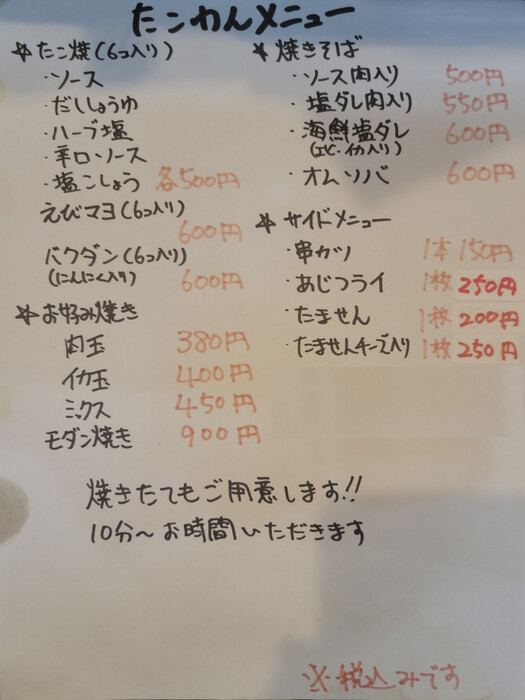 たこわんメニュー
☆たこ焼(6コ入り)
・ソース
・だししょうゆ
・ハーブ塩
・辛口ソース
・塩こしょう 各500円
えびマヨ(6コ入り)
600円
バクダン(6コ入り)
(にんにく入り) 600円
☆お好み焼き
肉玉 380円
イカ玉 400円
ミックス 450円
モダン焼き 900円
☆焼きそば
・ソース肉入り 500円
・塩ダレ肉入り 550円
・海鮮塩ダレ 600円
(エビ・イカ入り)
・オムソバ 600円
☆サイドメニュー
・串カツ 1本 150円
・あじフライ 1枚 250円
・たません 1枚 200円
・たませんチーズ入り 1枚 250円
焼きたてもご用意します!!
10分〜お時間いただきます
※税込みです